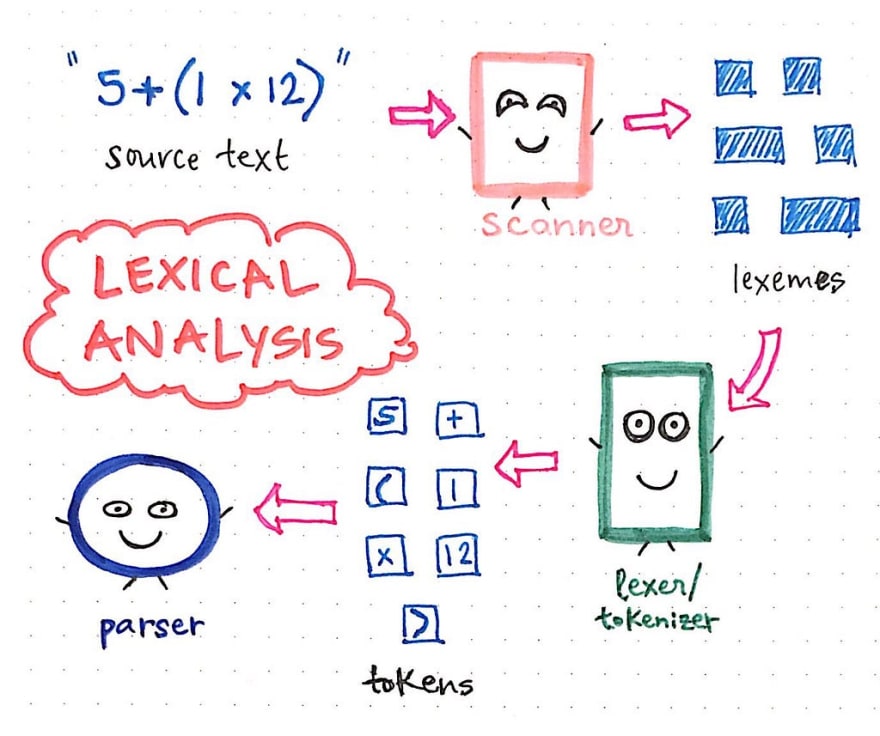 "5+(1 x 12)"
source text
scanner
lexemes
LEXICAL
ANALYSIS
5 +
( 1
x 12
)
tokens
lexer/
tokenizer
parser